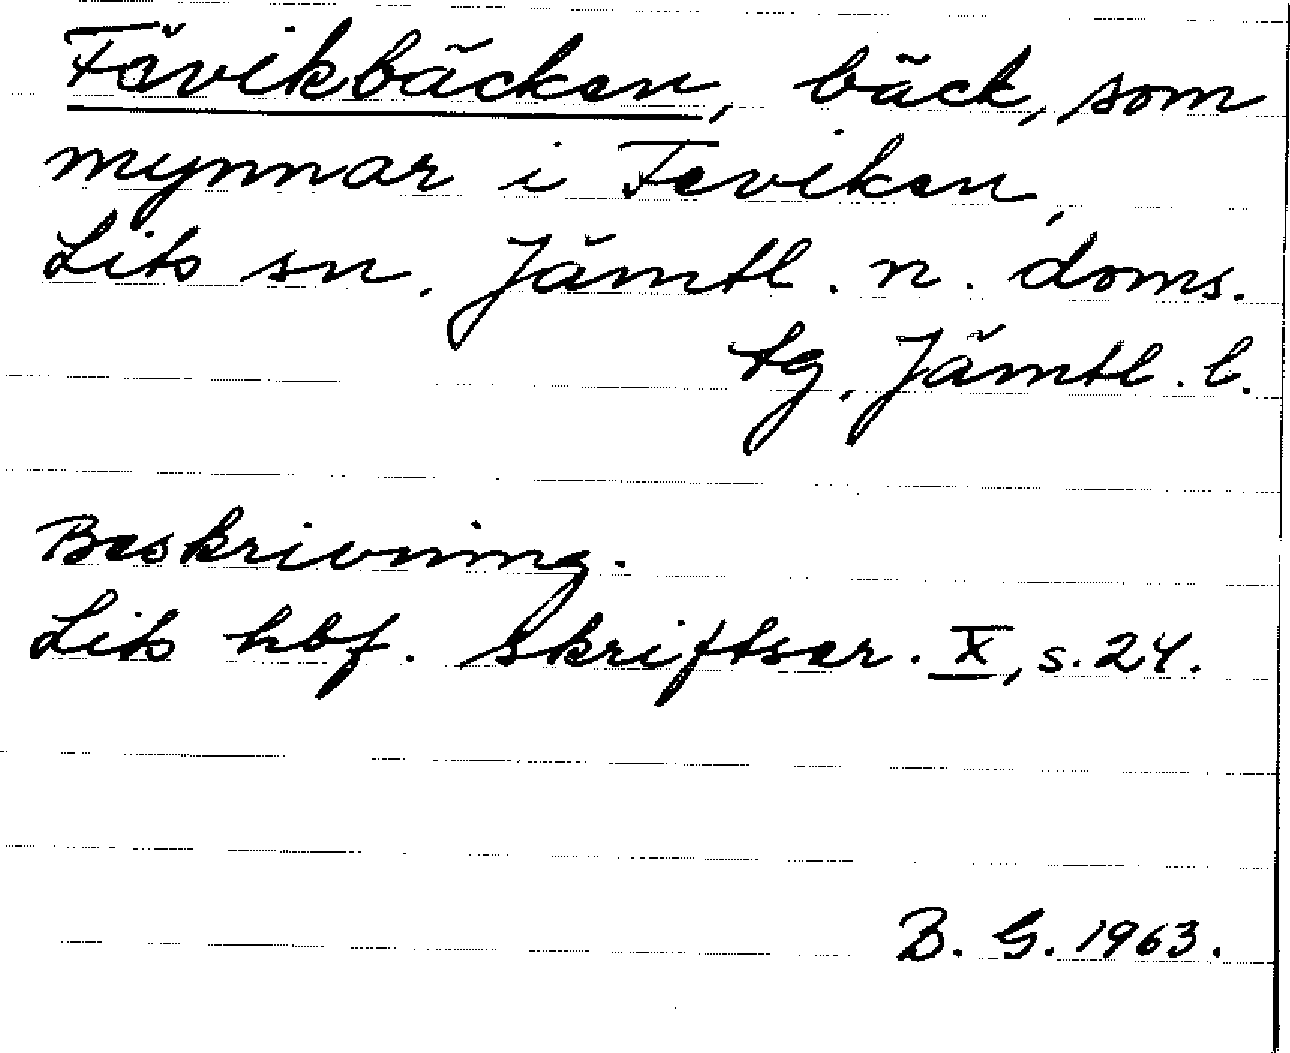 Fävikbäcken, bäck, som
mynnar i Faviken,
Lits sn. Jämtl. n. doms.
tg. Jämtl. l.
Beskrivning.
Lits hbf. Skriftser. X, s. 24.
B. G. 1963.